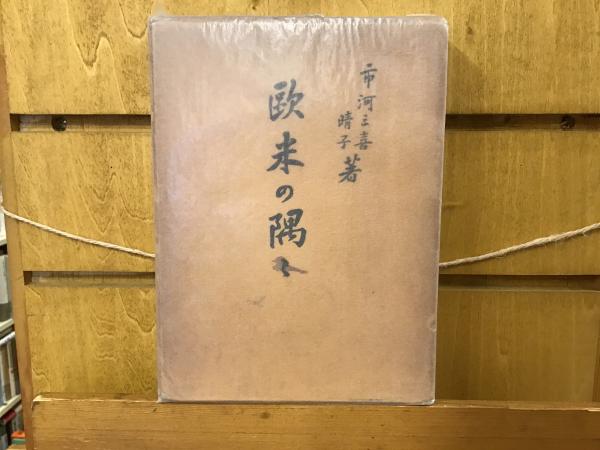 市河三喜
晴子
著
欧米の隅々